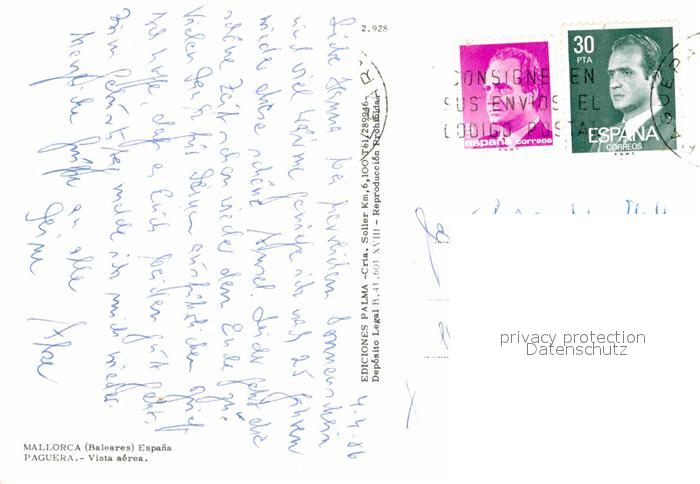 4.4.86
Liebe Hanna, bei herrlichem Sonnenschein
und viel Wärme genieße ich nach 25 Jahren
wieder diese schöne Insel. Leider geht die
schöne Zeit schon wieder dem Ende zu.
Vielen Dank für Deinen ausführlichen Brief
Ich hoffe, daß es Euch beiden gut geht.
Zum Geburtstag melde ich mich wieder.
Herzliche Grüße an alle
Deine
2.928
EDICIONES PALMA -Crta. Soller Km,6,100 Tél/289946-
Depósito Legal B.41.601 XVIII - Reproducción Prohibida.
CONSIGNE EN
SUS ENVIOS EL
CODIGO POSTAL
españa correos
F.N.M.T.
30
PTA
ESPAÑA
CORREOS
F.N.M.T.
privacy protection
Datenschutz
MALLORCA (Baleares) España
PAGUERA.- Vista aérea.